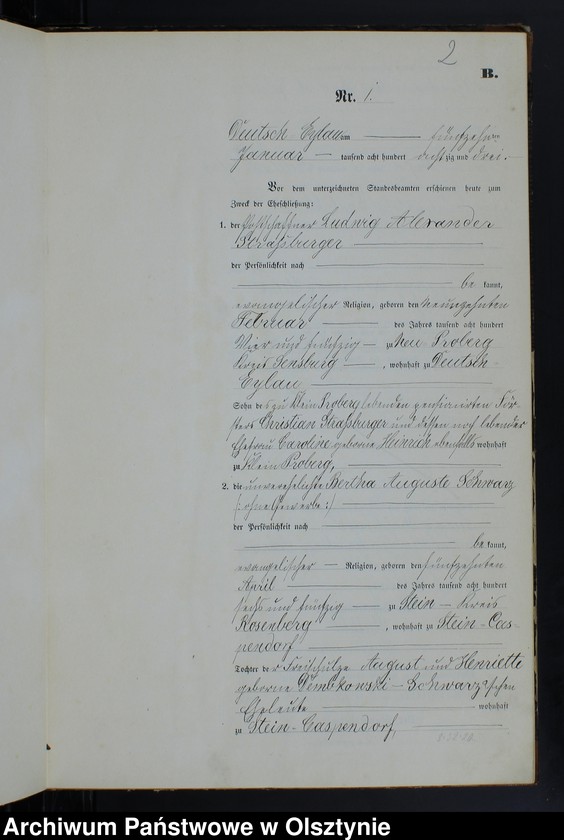 2
B.
Nr. 1.
Deutsch Eylau am fünfzehnten
Januar tausend acht hundert achtzig und drei.
Vor dem unterzeichneten Standesbeamten erschienen heute zum
Zweck der Eheschließung:
1. der Postschaffner Ludwig Alexander
Straßburger
der Persönlichkeit nach
be kannt,
evangelischer Religion, geboren den neunzehnten
Februar des Jahres tausend acht hundert
vier und fünfzig zu Neu Proberg
Kreis Sensburg, wohnhaft zu Deutsch-
Eylau
Sohn des zu Klein Proberg lebenden pensionirten För-
sters Christian Straßburger und dessen noch lebender
Ehefrau Caroline geborne Heinrich ebenfalls wohnhaft
zu Klein Proberg,
2. die unverehelichte Bertha Auguste Schwarz
(: ohne Gewerbe :)
der Persönlichkeit nach
be kannt,
evangelischer Religion, geboren den fünfzehnten
April des Jahres tausend acht hundert
sechs und fünfzig zu Stein Kreis
Rosenberg, wohnhaft zu Stein-Cas-
pendorf
Tochter der Freischulze August und Henriette
geborne Dembkowski-Schwarz'schen
Eheleute wohnhaft
zu Stein-Caspendorf,
Archiwum Państwowe w Olsztynie